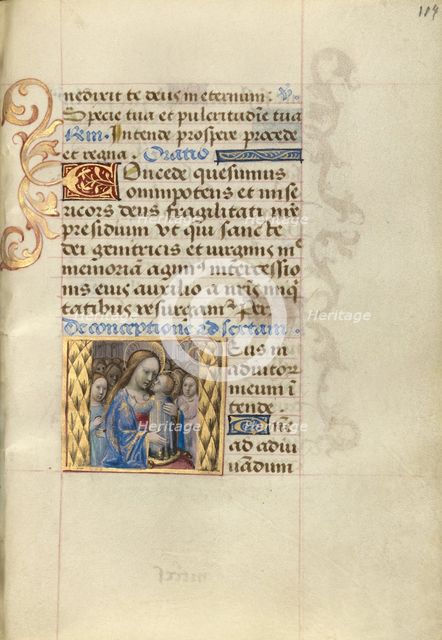 184
nedixit te deus in eternum: V.
Specie tua et pulcritudīe tua
Rm. Intende prospere procede
et regna. Oratio
Concede quesumus
omnipotens et mise
ricors deus fragilitati nr̄e
presidium vt qui sanc te
dei genitricis et virginis m̄
memoriam agimꝰ intercessio
nis eius auxilio a nr̄is iniq̄
tatibus resurgamꝰ Per
De conceptione ad sextam
Deus in
adiutor
meum ī
tende.
D
ad adiu
uandum
Heritage
Heritage
Heritage
Heritage
Heritage
Heritage